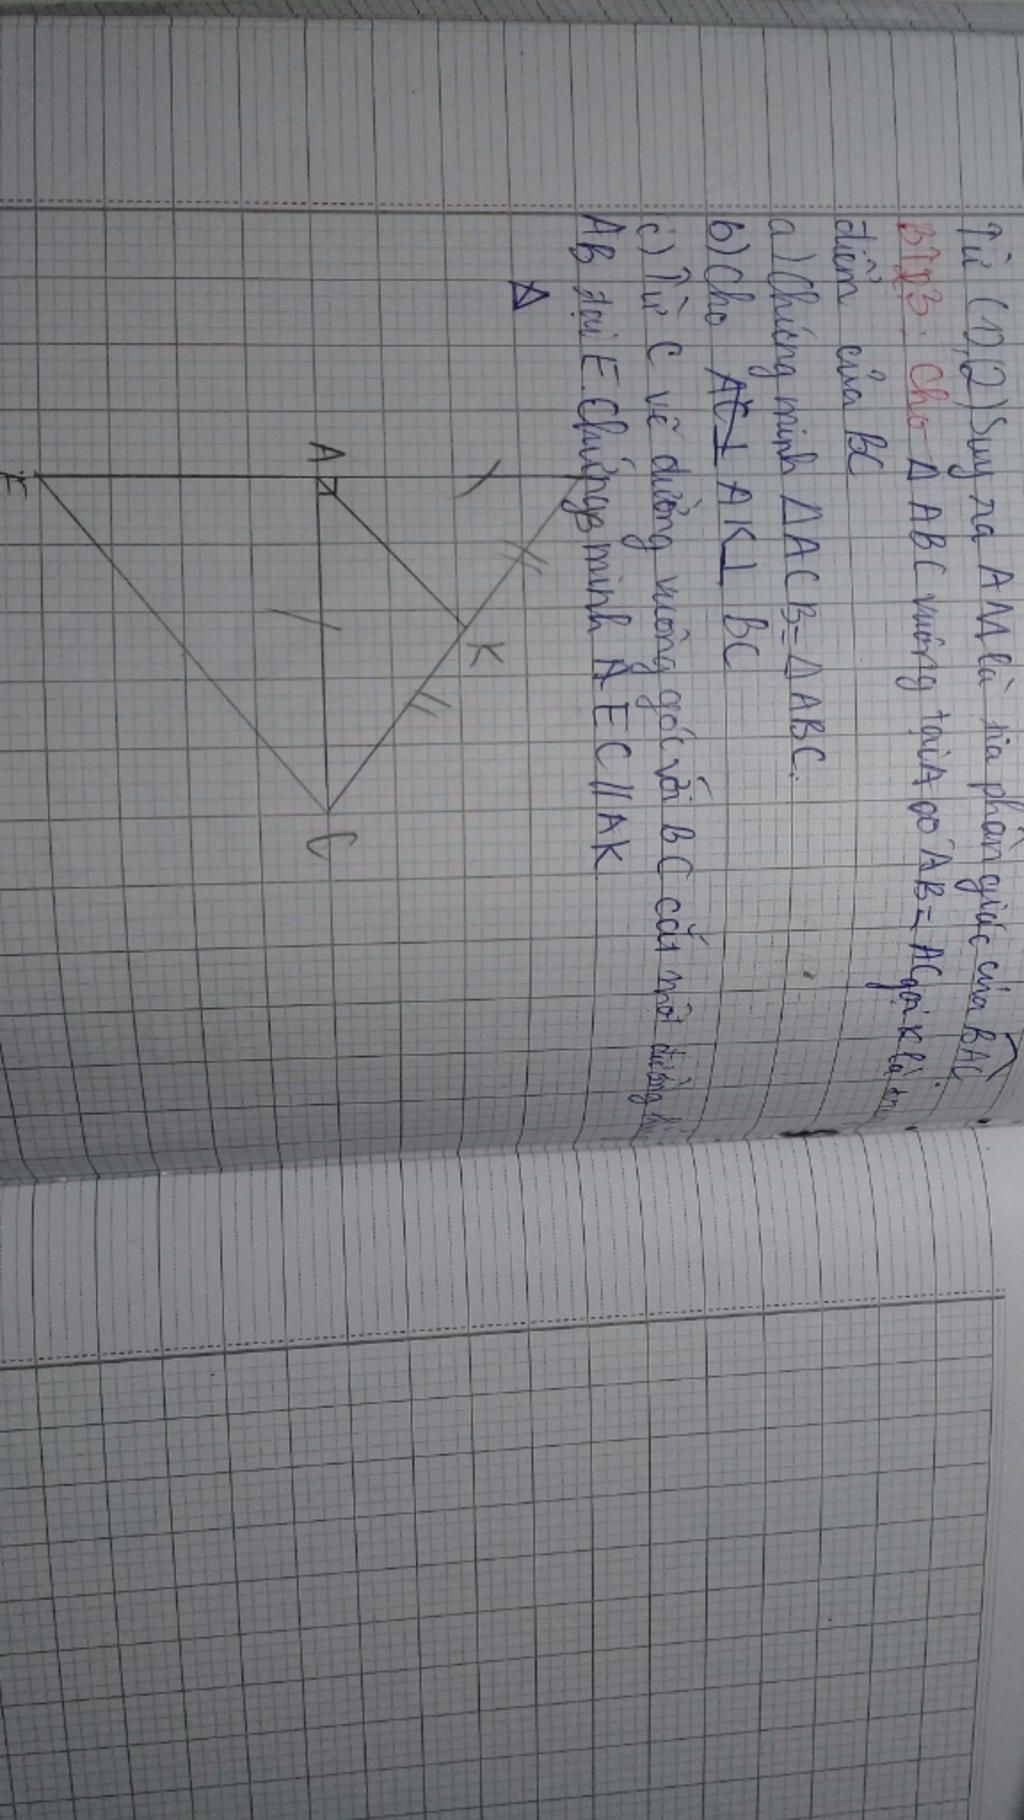 Từ (1),(2) Suy ra AM là tia phân giác của BAC
BT23: Cho Δ ABC vuông tại A có AB = AC gọi K là
điểm của BC
a) Chứng minh ΔACB = ΔABC.
b) Cho AK⊥ BC
c) Từ C vẽ đường vuông góc với BC cắt đường
AB tại E. Chứng minh EC // AK
A
B
K
C
E